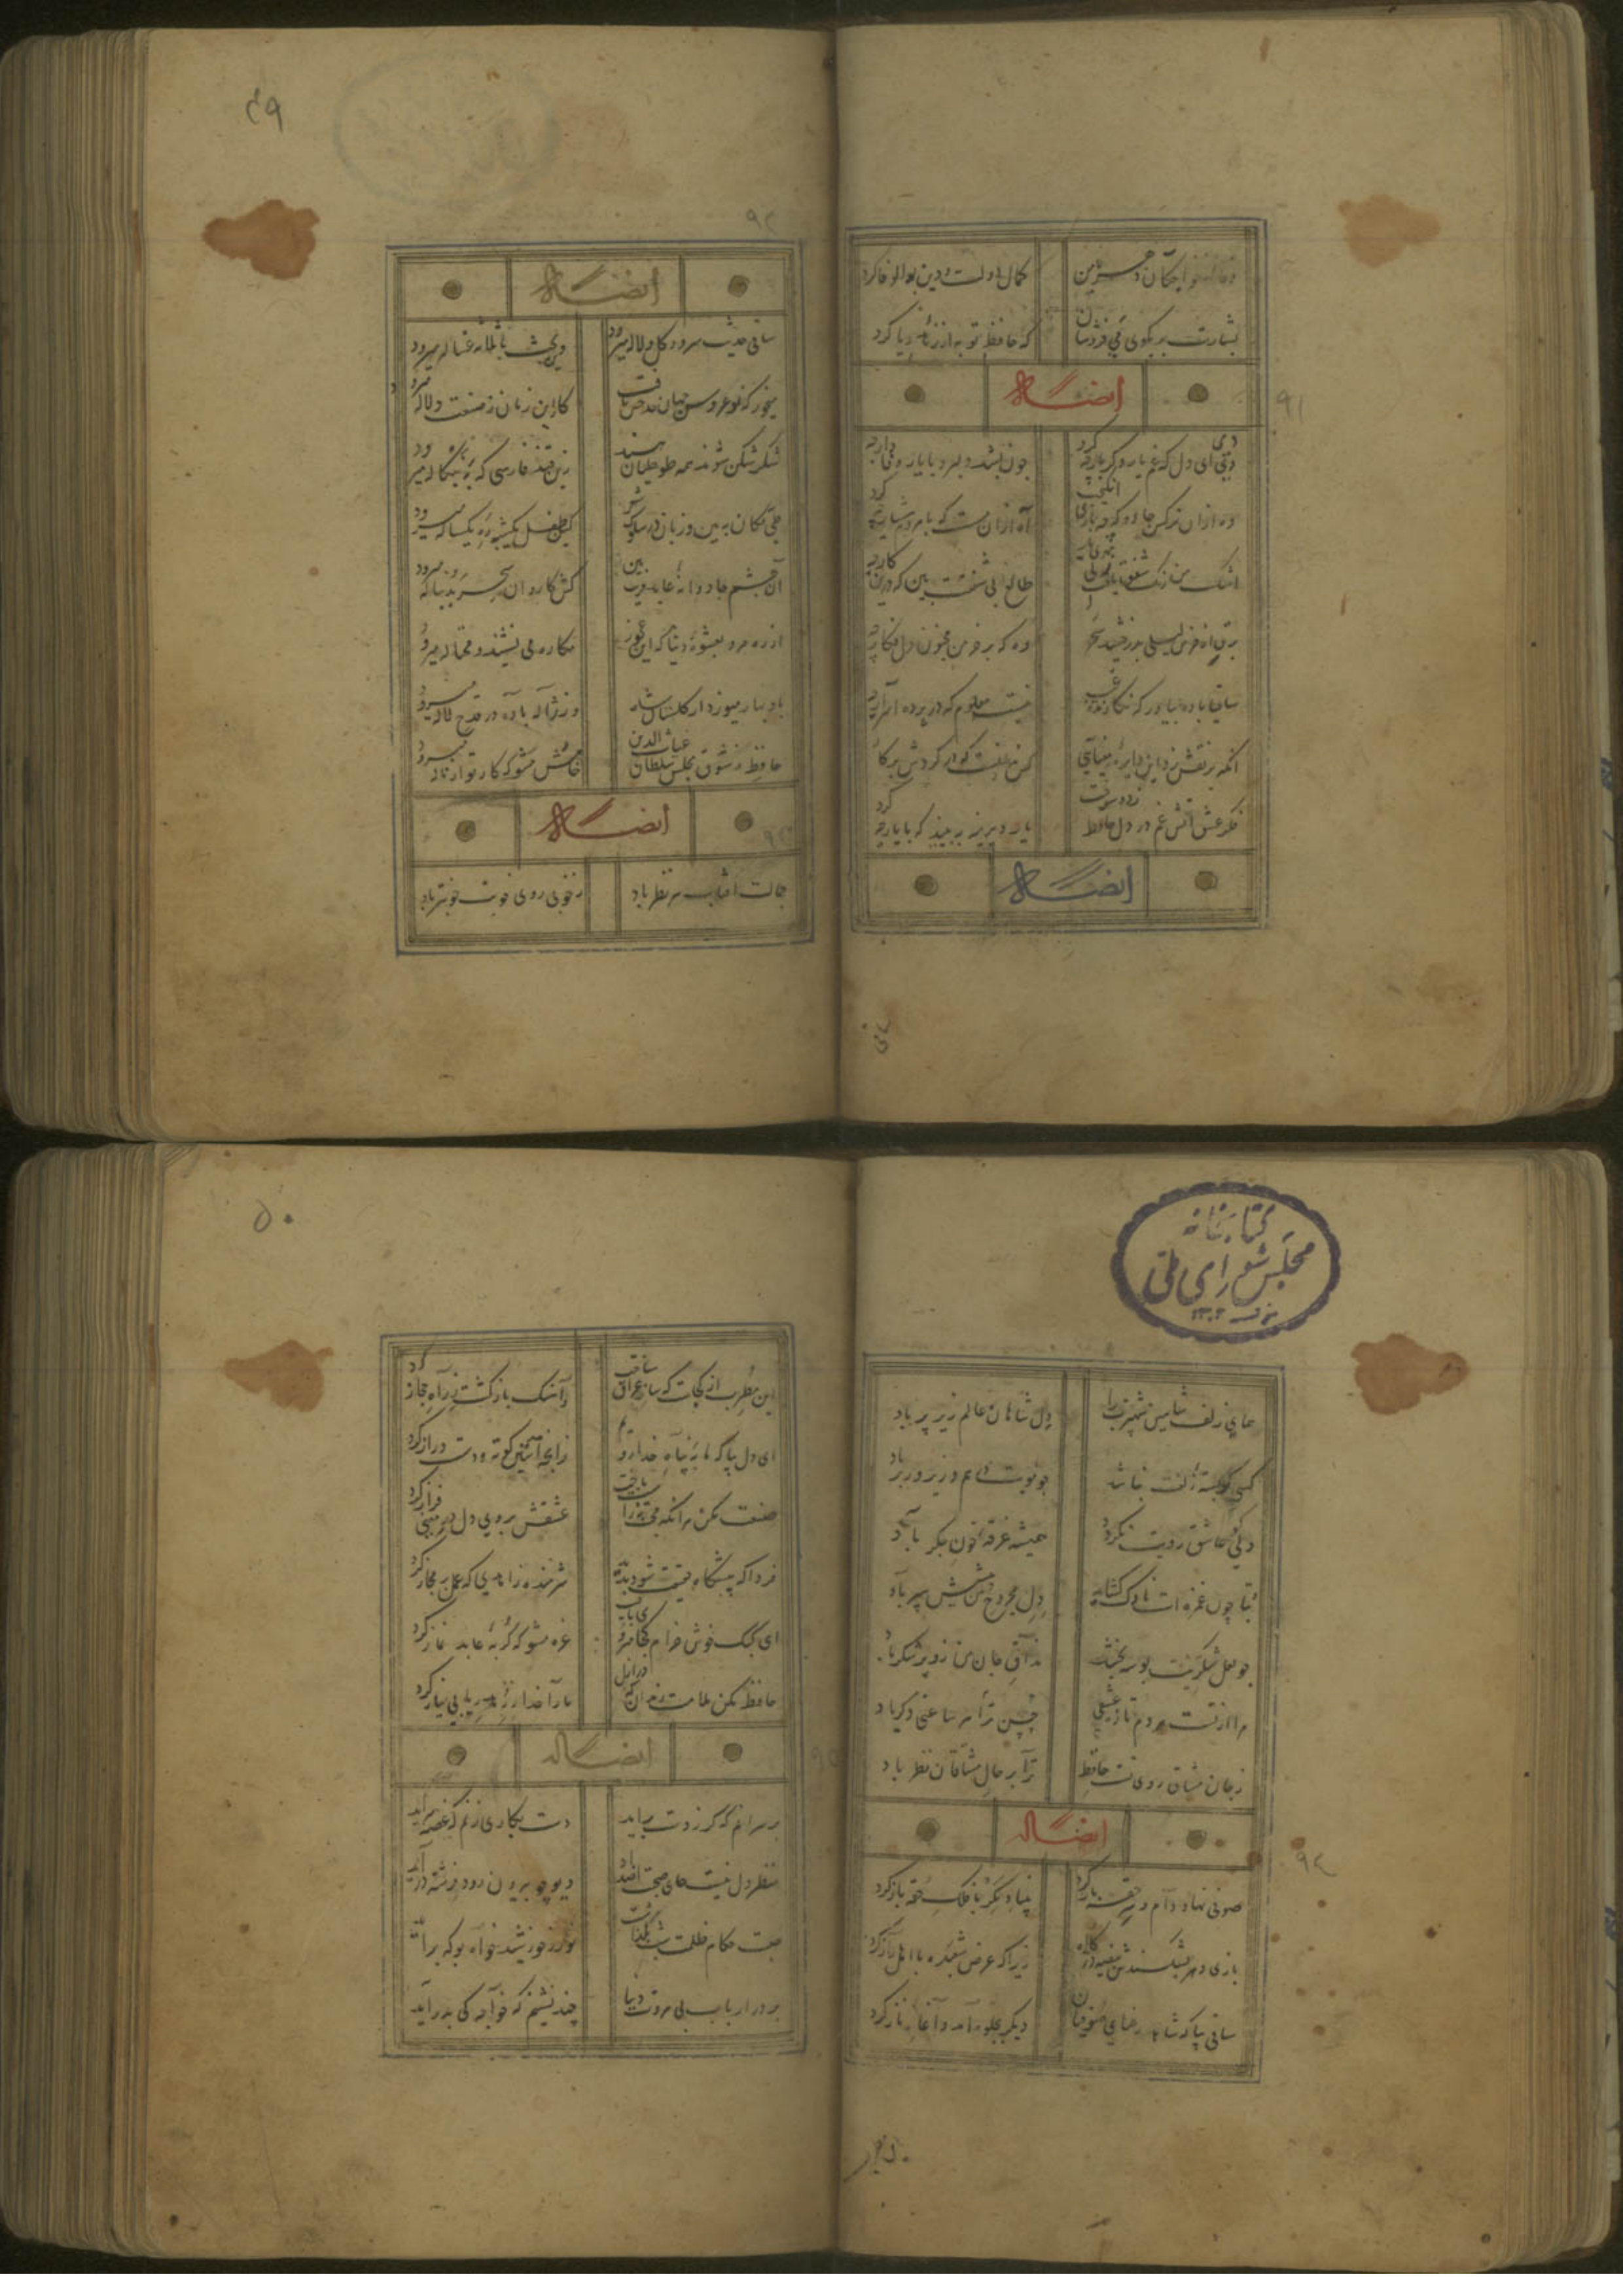 وفا از خواجگان شهر با من
کمال دولت و دین بوالوفا کرد
بشارت بر بکوی می فروشان
که حافظ توبه از زهد و ریا کرد
ایضاله
۹۱
دیدی ای دل که غم یار دگر بار چه کرد
چون بشد دلبر و با یار وفادار چه کرد
وه از آن نرکس جادو که چه بازی انکیخت
آه از آن مست که با مردم هشیار چه کرد
اشک من رنک شفق یافت ز بی مهری یار
طالع بی شفقت بین که درین کار چه کرد
برقی از خرمن لیلی بدرخشید سحر
وه که بر خرمن مجنون دل افکار چه کرد
ساقیا باده بیاور که نکارنده غیب
نیست معلوم که در پرده اسرار چه کرد
آنکه بر نقش زد این دایره مینایی
کس ندانست که در کردش پرکار چه کرد
فکر عشق آتش غم در دل حافظ زد و سوخت
یار دیرینه ببینید که با یار چه کرد
ایضاله
ساقی
۴۹
۹۲
ایضاله
ساقی حدیث سرو و کل و لاله میرود
وین بحث با ثلاثه غساله میرود
میخور که نوعروس جهان حد حسن یافت
کار این زمان ز صنعت دلاله میرود
شکر شکن شوند همه طوطیان هند
زین قند فارسی که به بنکاله میرود
طی مکان ببین و زمان در سلوک شعر
کین طفل یکشبه ره یکساله میرود
آن چشم جادوانه عابد فریب بین
کش کاروان سحر بدنباله میرود
از ره مرو بعشوه دنیا که این عجوز
مکاره می نشیند و محتاله میرود
باد بهار میوزد از کلستان شاه
وز ژاله باده در قدح لاله میرود
حافظ ز شوق مجلس سلطان غیاث الدین
خامش مشو که کار تو از ناله میرود
ایضاله
جمالت آفتاب هر نظر باد
ز خوبی روی خوبت خوبتر باد
کتابخانه
مجلس شورای ملی
همای زلف شاهین شهپرت را
دل شاهان عالم زیر پر باد
کسی کو بسته زلفت نباشد
چو نوبت دایم و زیر و زبر باد
دلی کو عاشق رویت نکردد
همیشه غرقه خون جکر باد
بتا چون غمزه ات ناوک کشاید
دل مجروح من پیشش سپر باد
چو لعل شکرینت بوسه بخشد
مذاق جان من زو پر شکر باد
مرا از تست هر دم تازه عشقی
چنین ترا هر ساعتی دکر باد
ز جان مشتاق روی تست حافظ
ترا بر حال مشتاقان نظر باد
ایضاله
صوفی نهاد دام و سر حقه باز کرد
بنیاد مکر با فلک حقه باز کرد
بازی دهر بشکندش بیضه در کلاه
زیرا که عرض شعبده با اهل راز کرد
ساقی بیا که شاهد رعنای صوفیان
دیکر بجلوه آمد و آغاز ناز کرد
۵۰
این مطرب از کجاست که ساز عراق ساخت
و آهنک بازکشت ز راه حجاز کرد
ای دل بیا که ما به پناه خدا رویم
زانچه آستین کوته و دست دراز کرد
صنعت مکن که آنکه محبت نه راست باخت
عشقش بروی دل در معنی فراز کرد
فردا که پیشکاه حقیقت شود پدید
شرمنده ز اهدی که عمل بر مجاز کرد
ای کبک خوش خرام کجا میروی بایست
غره مشو که کربه عابد نماز کرد
حافظ مکن ملامت رندان که در ازل
ما را خدا ز زهد ریایی بی نیاز کرد
ایضاله
بر سر آنم که کر ز دست برآید
دست بکاری زنم که غصه سرآید
منظر دل نیست جای صحبت اضداد
دیو چو بیرون رود فرشته درآید
صحبت حکام ظلمت شب یلداست
نور ز خورشید خواه بو که برآید
بر در ارباب بی مروت دنیا
چند نشینم که خواجه کی بدر آید